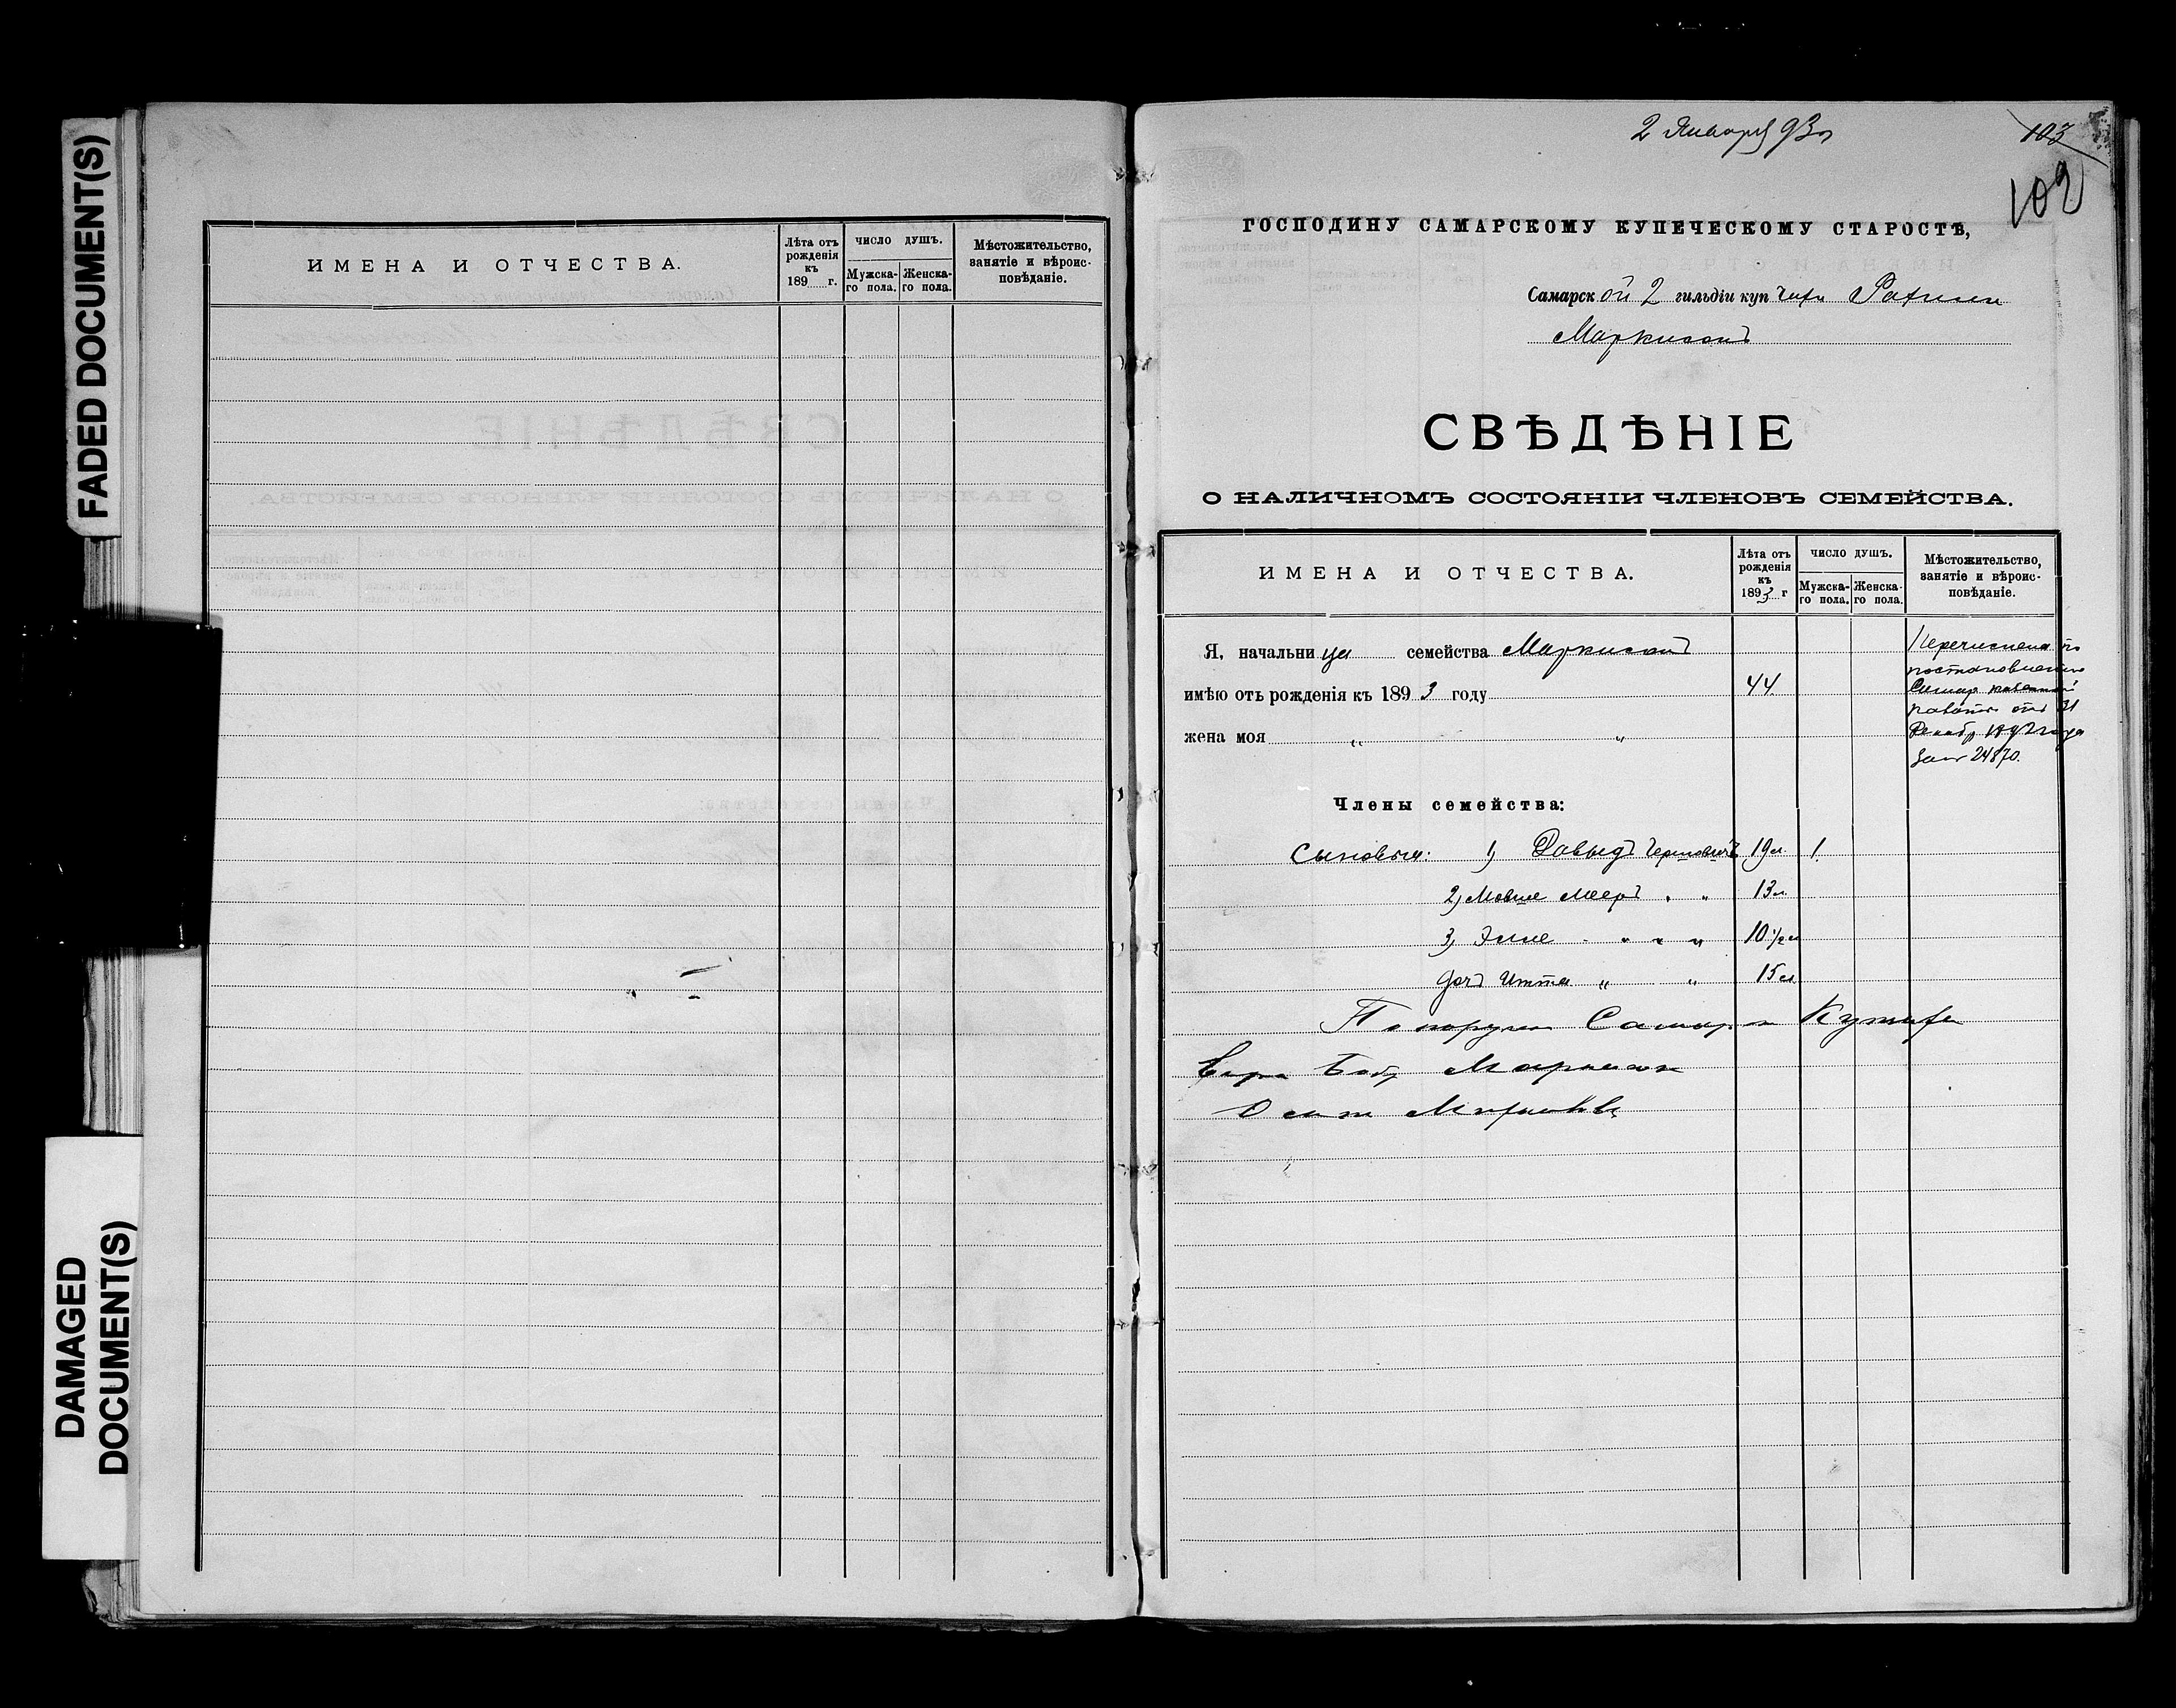 FADED DOCUMENT(S)
DAMAGED
DOCUMENT(S)
ИМЕНА И ОТЧЕСТВА.
Лѣта отъ
рожденія
къ
189 г.
ЧИСЛО ДУШЪ.
Мужска-
го пола.
Женска-
го пола.
Мѣстожительство,
занятіе и вѣроис-
повѣданіе.
2 Января 93 г
103
102
ГОСПОДИНУ САМАРСКОМУ КУПЕЧЕСКОМУ СТАРОСТѢ,
Самарской 2 гильдіи куп
Маркисонъ
СВѢДѢНІЕ
О НАЛИЧНОМЪ СОСТОЯНІИ ЧЛЕНОВЪ СЕМЕЙСТВА.
ИМЕНА И ОТЧЕСТВА.
Лѣта отъ
рожденія
къ
1893 г
ЧИСЛО ДУШЪ.
Мужска-
го пола.
Женска-
го пола.
Мѣстожительство,
занятіе и вѣроис-
повѣданіе.
Я, начальница семейства Маркисонъ
имѣю отъ рожденія къ 1893 году 44
жена моя " "
Перечислена по
постановленію
Самар казенной
палаты отъ 31
Декабр 1892 года
за № 24870.
Члены семейства:
Сыновья: 1, Давыдъ 19 л. 1.
2, Мовше Мееръ " " 13 л.
3, " " " 10 1/2 л
дочь Итта " " 15 л